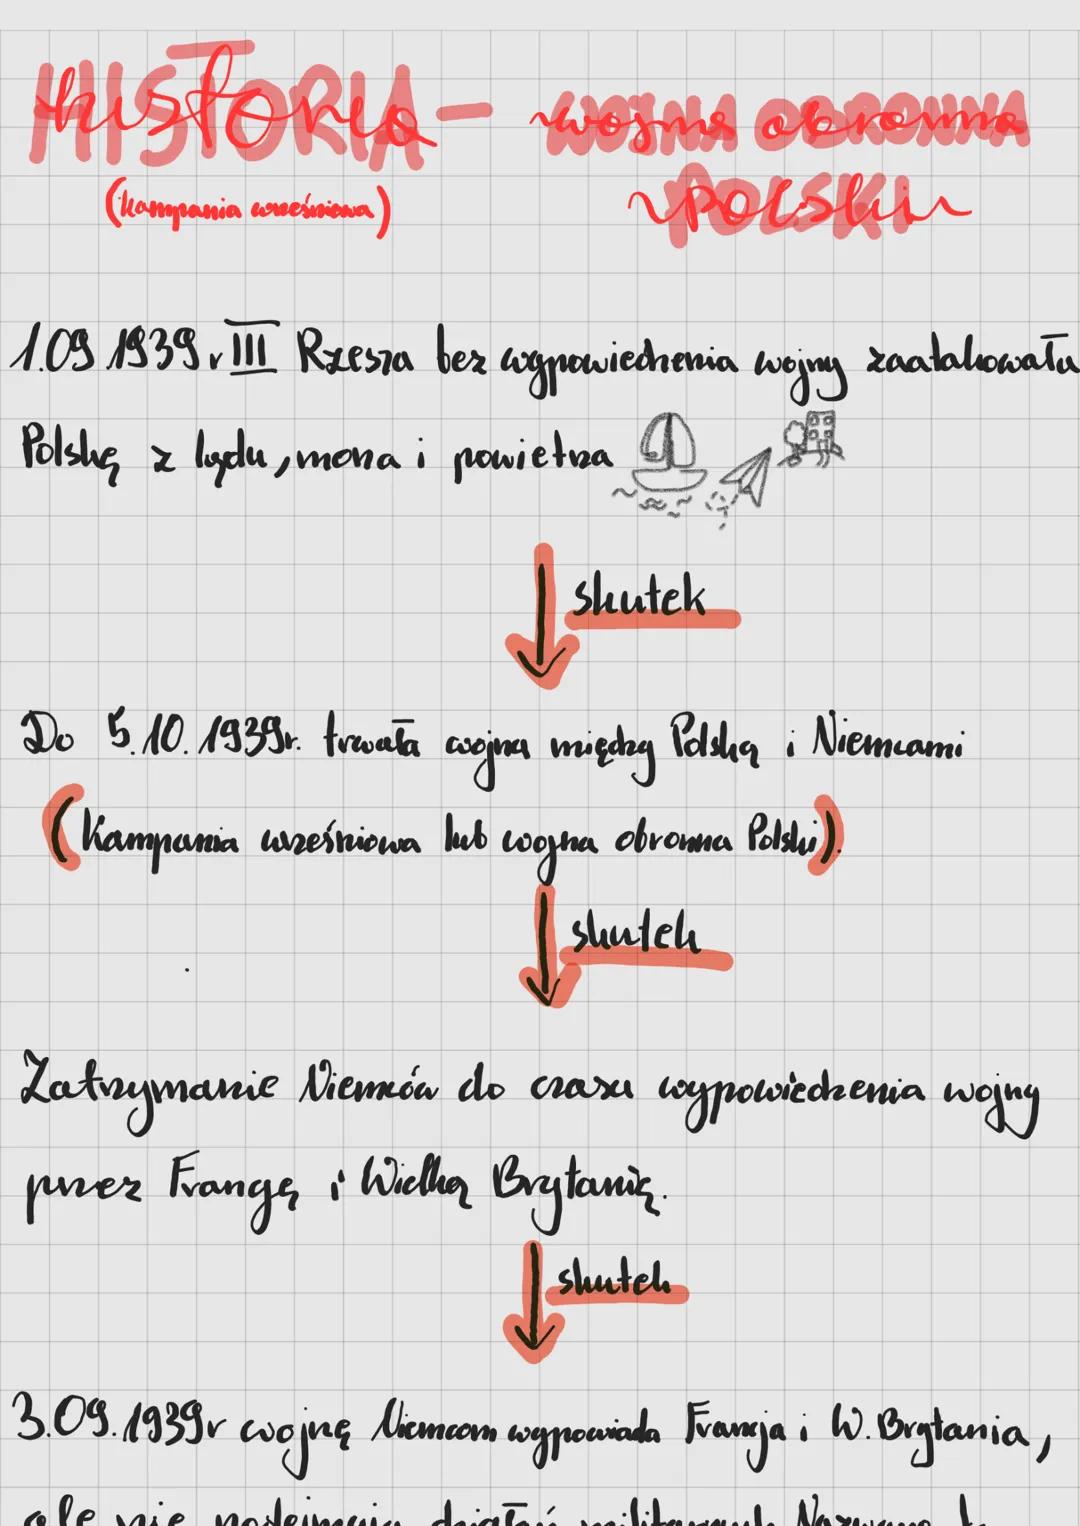 HISTORIA - WOJNA OBRONNA
(kampania wrześniowa) POLSKI
1.09.1939r. III Rzesza bez wypowiedzenia wojny zaatakowała
Polskę z lądu, morza i powietrza
skutek
Do 5.10.1939r. trwała wojna między Polską i Niemcami
(Kampania wrześniowa lub wojna obronna Polski).
skutek
Zatrzymanie Niemców do czasu wypowiedzenia wojny
przez Francję i Wielką Brytanię.
skutek
3.09.1939r wojnę Niemcom wypowiada Francja i W. Brytania,
ale nie podejmują działań militarnych. Nazwano to